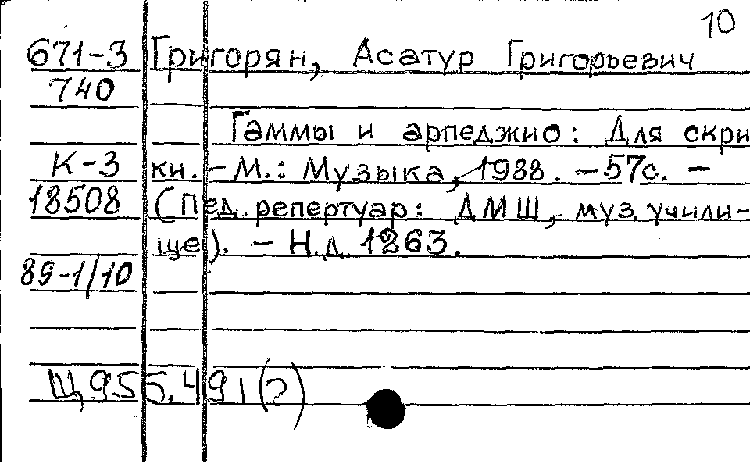 10
671-3 Григорян, Асатур Григорьевич
740
Гаммы и арпеджио: Для скри
К-3 ки. - М.: Музыка, 1988. - 57с. -
18508 (Пед. репертуар: ДМШ, муз. учили-
ще). - Н.д.
89-1/10
Щ955.491(2)